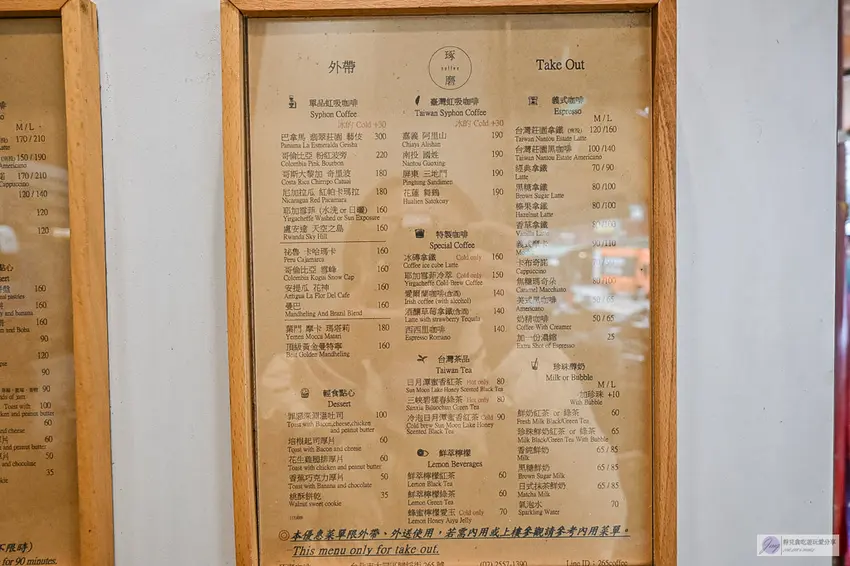 外帶
琢
coffee
磨
Take Out
單品虹吸咖啡
Syphon Coffee
冰的 Cold +30
巴拿馬 翡翠莊園 藝伎 300
Panama La Esmeralda Gesha
哥倫比亞 粉紅波旁 220
Colombia Pink Bourbon
哥斯大黎加 奇里波 180
Costa Rica Chirripo Catuai
尼加拉瓜 紅帕卡瑪拉 180
Nicaragua Red Pacamara
耶加雪菲 (水洗 or 日曬) 160
Yirgacheffe Washed or Sun Exposure
盧安達 天空之島 160
Rwanda Sky Hill
祕魯 卡哈瑪卡 160
Peru Cajamarca
哥倫比亞 雪峰 160
Colombia Kogui Snow Cap
安提瓜 花神 160
Antigua La Flor Del Cafe
曼巴 160
Mandheling And Brazil Blend
葉門 摩卡 瑪塔莉 180
Yemen Mocca Matari
頂級黃金曼特寧 160
Best Golden Mandheling
輕食點心
Dessert
100
Toast with Bacon,cheese,chicken
and peanut butter
培根起司厚片 60
Toast with Bacon and cheese
花生雞腿排厚片 60
Toast with chicken and peanut butter
香蕉巧克力厚片 50
Toast with Banana and chocolate
桃酥餅乾 35
Walnut sweet cookie
臺灣虹吸咖啡
Taiwan Syphon Coffee
冰的 Cold +30
嘉義 阿里山 190
Chiayi Alishan
南投 國姓 190
Nantou Guoxing
屏東 三地門 190
Pingtung Sandimen
花蓮 舞鶴 190
Hualien Satokoay
特製咖啡
Special Coffee
冰磚拿鐵 Cold only 160
Coffee ice cube Latte
耶加雪菲冷萃 Cold only 150
Yirgacheffe Cold Brew Coffee
愛爾蘭咖啡(含酒) 140
Irish coffee (with alcohol)
酒釀草莓拿鐵(含酒) 140
Latte with strawberry Tequila
西西里咖啡 140
Espresso Romano
台灣茶品
Taiwan Tea
日月潭蜜香紅茶 Hot only 80
Sun Moon Lake Honey Scented Black Tea
三峽碧螺春綠茶 Hot only 80
Sanxia Biluochun Green Tea
冷泡日月潭蜜香紅茶 Cold 90
Cold brew Sun Moon Lake Honey
Scented Black Tea
鮮萃檸檬
Lemon Beverages
鮮萃檸檬紅茶 60
Lemon Black Tea
鮮萃檸檬綠茶 60
Lemon Green Tea
蜂蜜檸檬愛玉 Cold only 70
Lemon Honey Aiyu Jelly
義式咖啡
Espresso
M / L
台灣莊園拿鐵 120/160
Taiwan Nantou Estate Latte
台灣莊園黑咖啡 100/140
Taiwan Nantou Estate Americano
經典拿鐵 70 / 90
Latte
黑糖拿鐵 80 /100
Brown Sugar Latte
榛果拿鐵 80 /100
Hazelnut Latte
香草拿鐵 80/100
Vanilla Latte
義式摩卡 90/110
卡布奇諾
Cappuccino
焦糖瑪奇朵 80/100
Caramel Macchiato
美式黑咖啡 50/65
Americano
奶精咖啡 50 / 65
Coffee With Creamer
加一份濃縮 25
Extra Shot of Espresso
珍珠薄奶
Milk or Bubble
M / L
加珍珠 +10
With Bubble
鮮奶紅茶 or 綠茶 60
Fresh Milk Black/Green Tea
珍珠鮮奶紅茶 or 綠茶 65
Milk Black/Green Tea With Bubble
香純鮮奶 65 / 85
Milk
黑糖鮮奶 65 / 85
Brown Sugar Milk
日式抹茶鮮奶 65 / 85
Matcha Milk
氣泡水 70
Sparkling Water
◎本優惠菜單限外帶、外送使用，若需內用或上樓參觀請參考內用菜單。
This menu only for take out.
(02) 2557-1390
Line ID：265coffee
M / L
170 / 210
Latte
150 / 190
Americano
170 / 210
Cappuccino
120 / 140
120
120
點心
Dessert
160
160
160
90
120
90
90
100
60
60
50
35
不限時)
for 90 minutes.